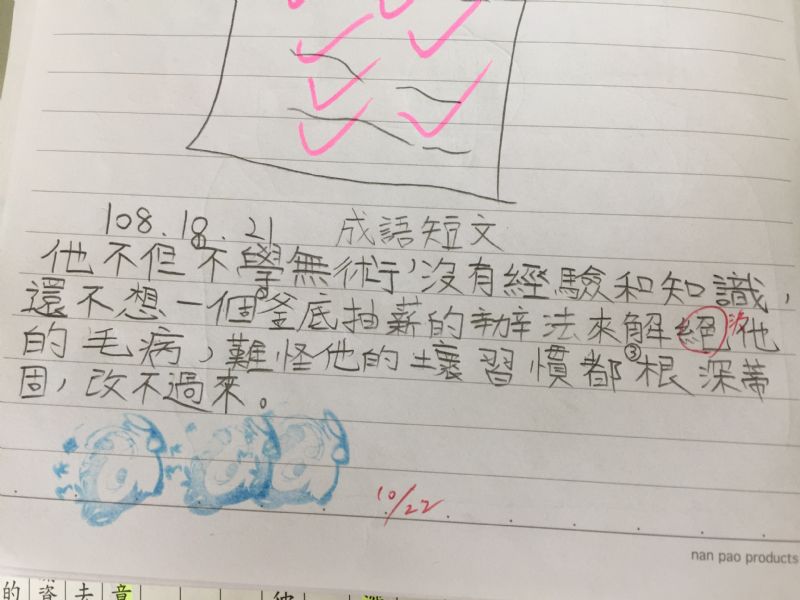 108.10.21 成語短文
他不但①不學無術,沒有經驗和知識,
還不想一個②釜底抽薪的辦法來解絕決他
的毛病,難怪他的壞習慣都③根深蒂
固,改不過來。
10/22
nan pao products
的 資 去 意